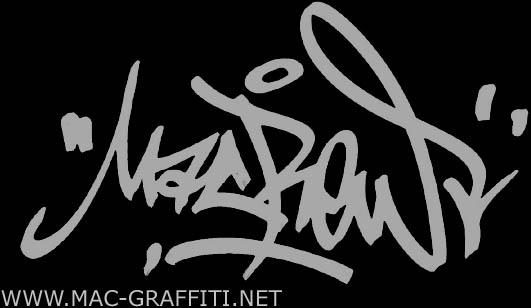 "MACREW"
WWW.MAC-GRAFFITI.NET